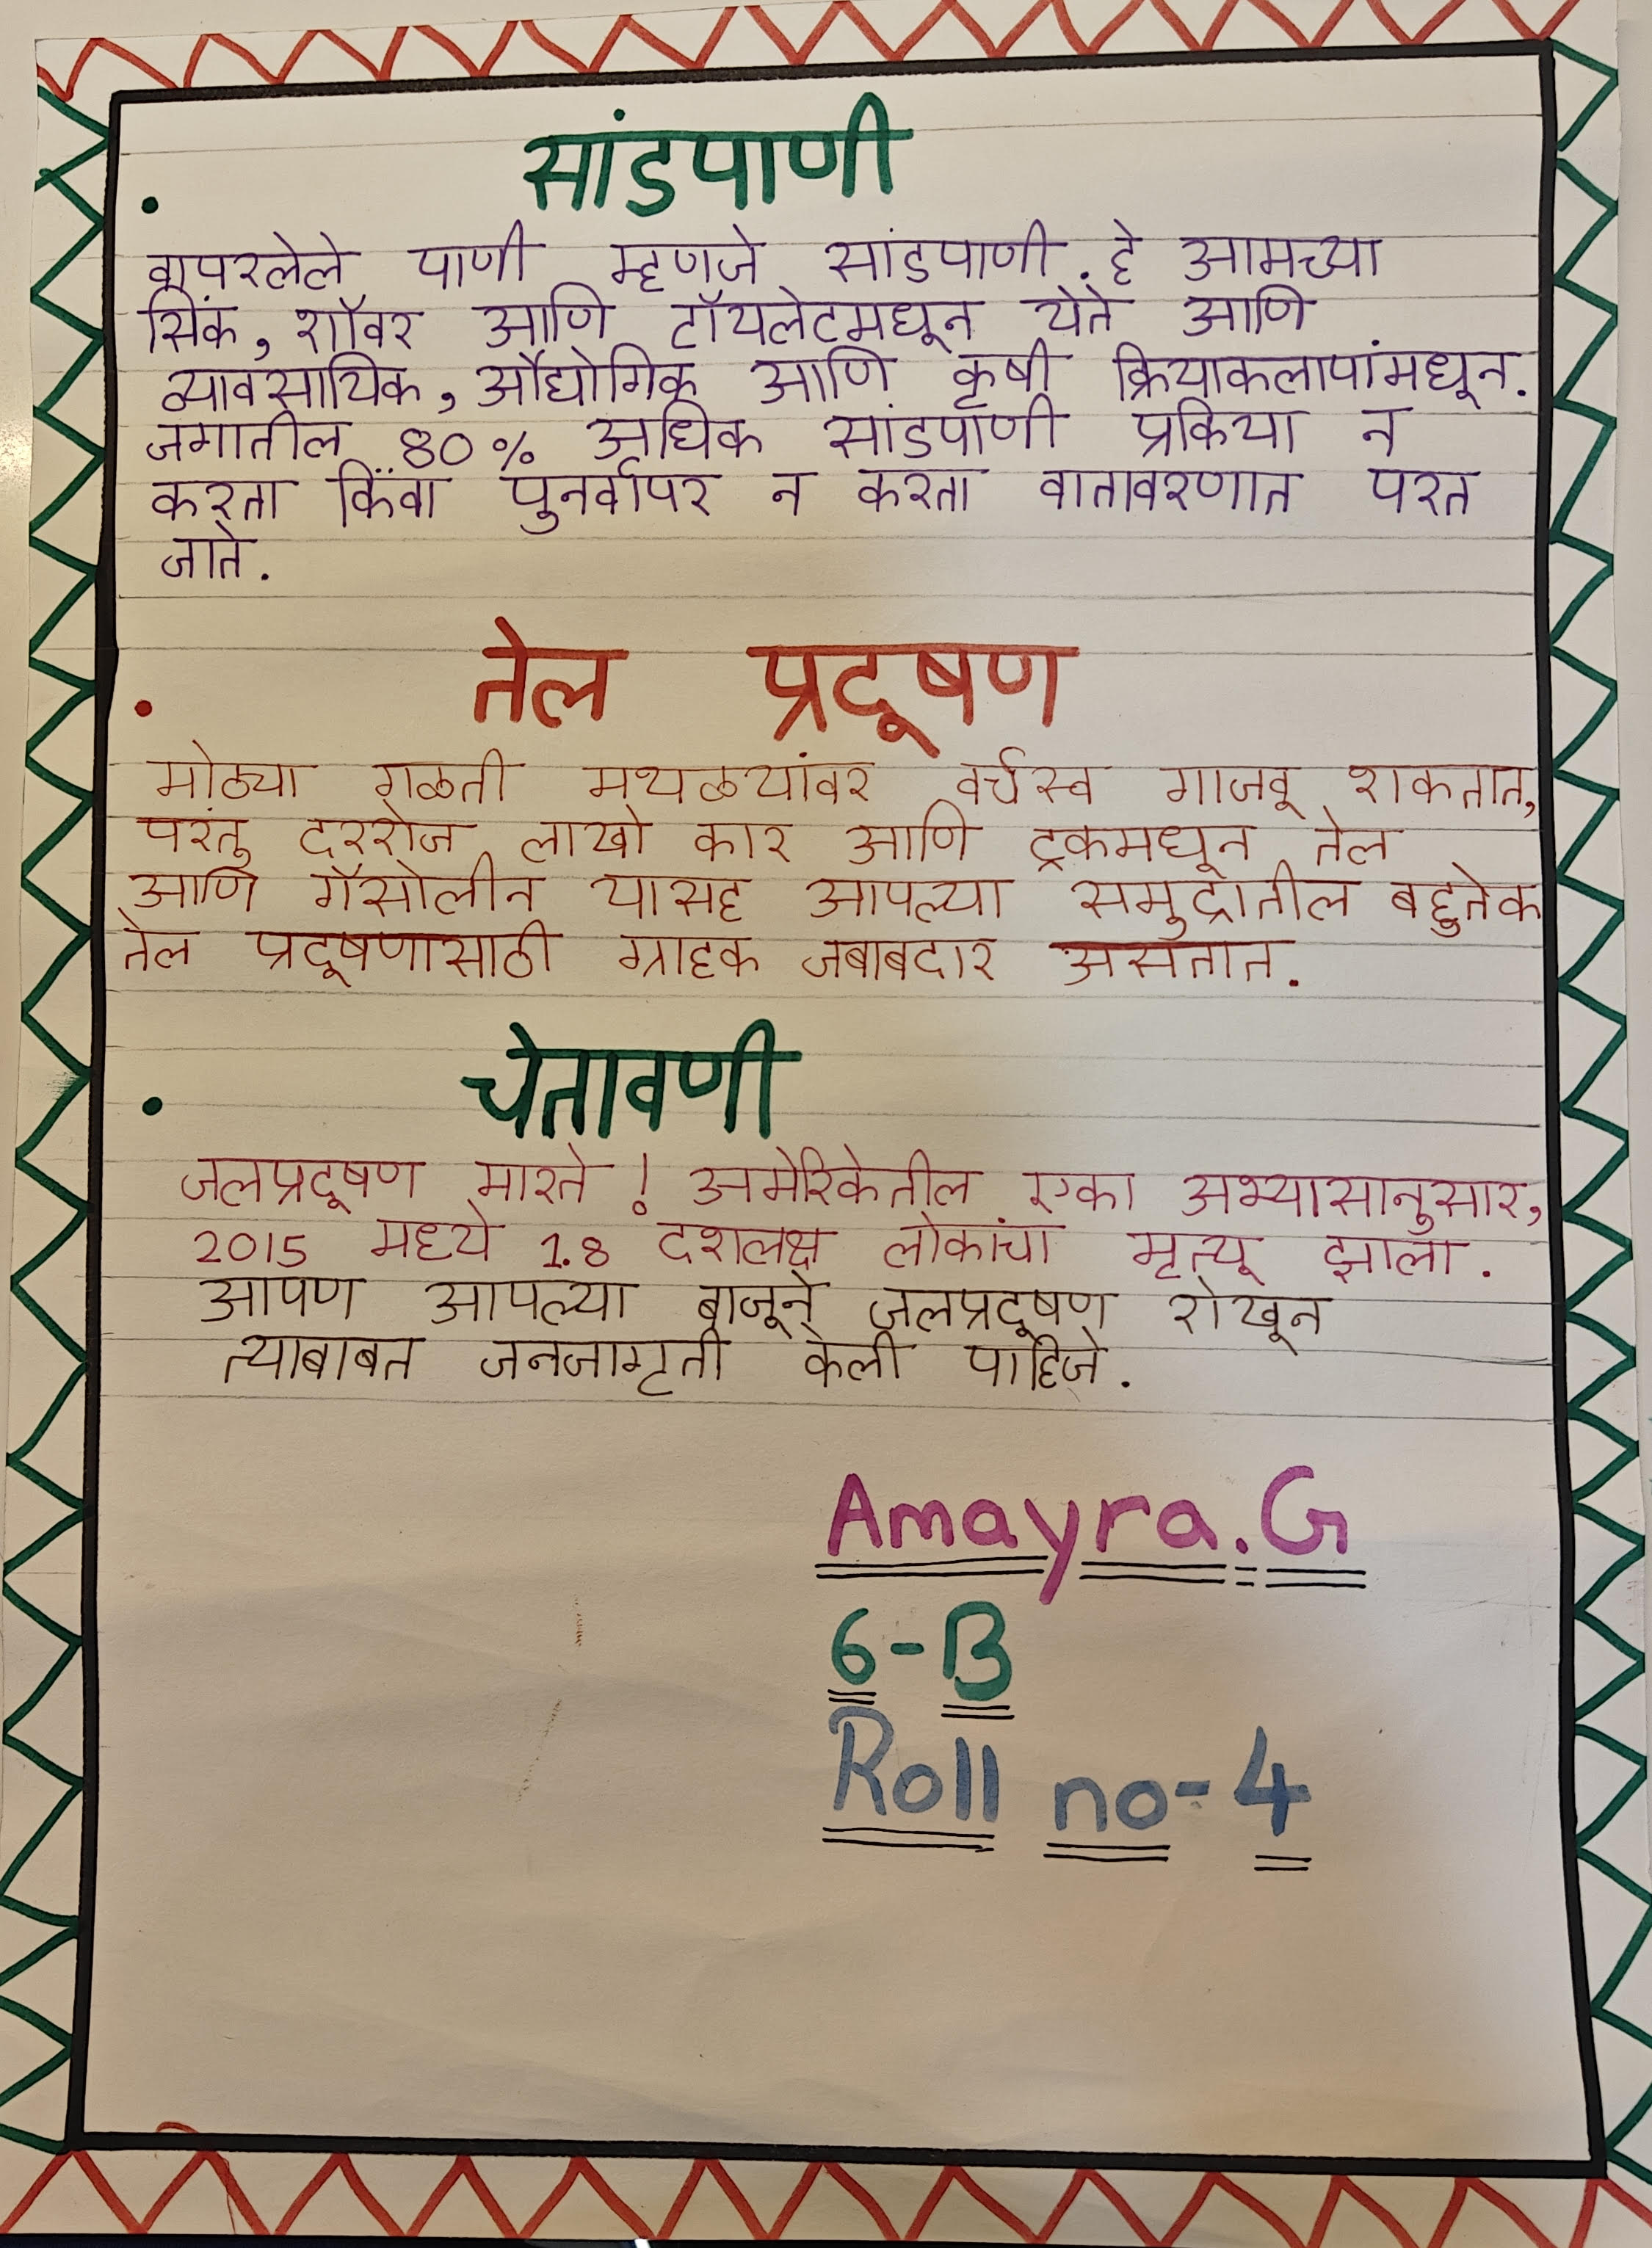 सांडपाणी
वापरलेले पाणी म्हणजे सांडपाणी. हे आमच्या
सिंक, शॉवर आणि टॉयलेटमधून येते आणि
व्यावसायिक, औद्योगिक आणि कृषी क्रियाकलापांमधून.
जगातील 80% अधिक सांडपाणी प्रकिया न
करता किंवा पुनर्वापर न करता वातावरणात परत
जाते.
तेल प्रदूषण
मोठ्या गळती मथळ्यांवर वर्चस्व गाजवू शकतात,
परंतु दररोज लाखो कार आणि ट्रकमधून तेल
आणि गॅसोलीन यासह आपल्या समुद्रातील बहुतेक
तेल प्रदूषणासाठी ग्राहक जबाबदार असतात.
चेतावणी
जलप्रदूषण मारते! अमेरिकेतील एका अभ्यासानुसार,
2015 मध्ये 1.8 दशलक्ष लोकांचा मृत्यू झाला.
आपण आपल्या बाजूने जलप्रदूषण रोखून
त्याबाबत जनजागृती केली पाहिजे.
Amayra.G
6-B
Roll no-4